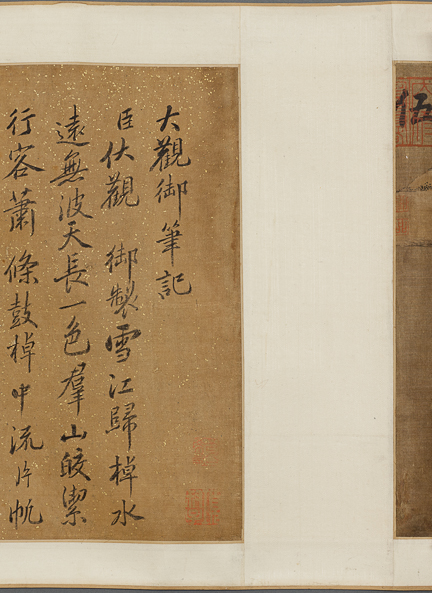 伍
大觀御筆記
臣伏觀 御製雪江歸棹水
遠無波天長一色羣山皎潔
行客蕭條鼓棹中流片帆